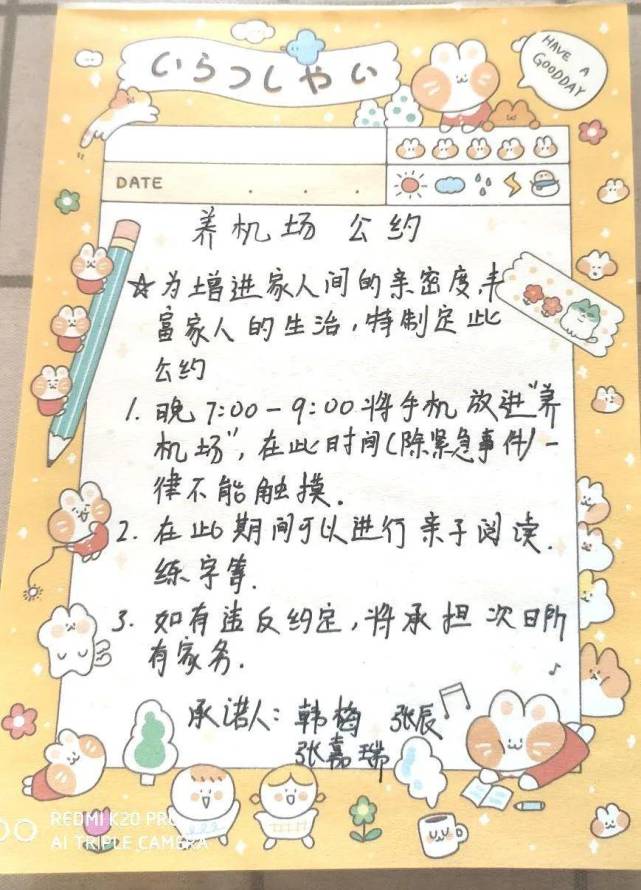 いらつしやい
HAVE A
GOODDAY
DATE
养机场 公约
☆为增进家人间的亲密度丰
富家人的生治，特制定此
公约
1. 晚7:00-9:00将手机放进"养
机场"，在此时间(除紧急事件)一
律不能触摸.
2. 在此期间可以进行亲子阅读.
练字等.
3. 如有违反约定，将承担次日所
有家务.
承诺人：韩梅 张辰
张嘉瑞
REDMI K20 PRO
AI TRIPLE CAMERA